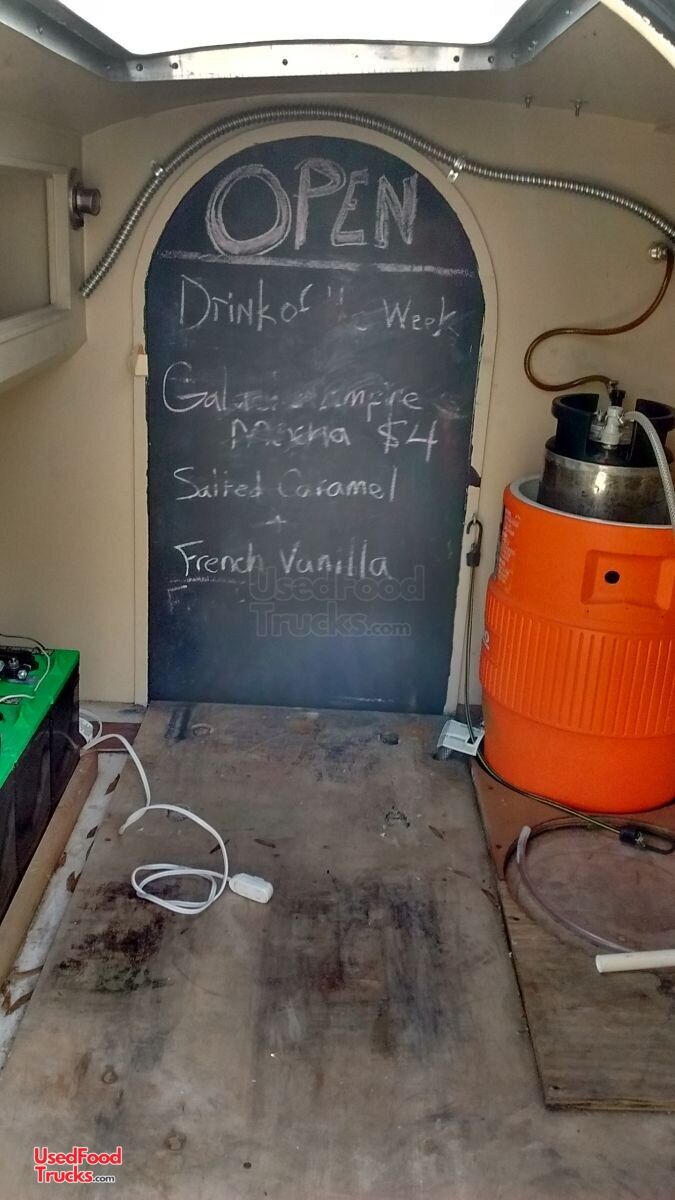 OPEN
Drink of the Week
Empire
Mocha $4
Salted Caramel
+
French Vanilla
UsedFood
Trucks.com
UsedFood
Trucks.com